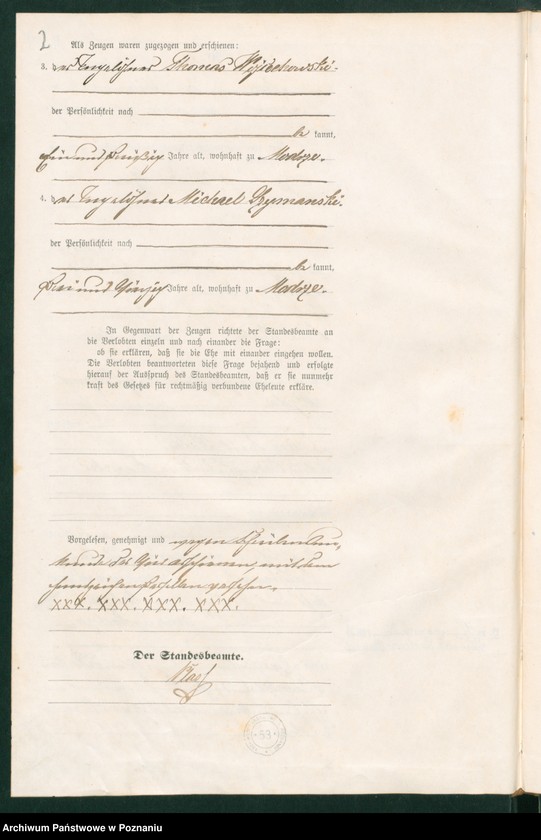 2
Als Zeugen waren zugezogen und erschienen:
3. der Tagelöhner Thomas Wojciechowski
der Persönlichkeit nach
be kannt,
ein und dreißig Jahre alt, wohnhaft zu Modrze.
4. der Tagelöhner Michael Szymanski.
der Persönlichkeit nach
be kannt,
drei und Jahre alt, wohnhaft zu Modrze.
In Gegenwart der Zeugen richtete der Standesbeamte an
die Verlobten einzeln und nach einander die Frage:
ob sie erklären, daß sie die Ehe mit einander eingehen wollen.
Die Verlobten beantworteten diese Frage bejahend und erfolgte
hierauf der Ausspruch des Standesbeamten, daß er sie nunmehr
kraft des Gesetzes für rechtmäßig verbundene Eheleute erkläre.
Vorgelesen, genehmigt und wegen Schreibensun-
kunde der Erschienenen mit den
Handzeichen derselben versehen.
XXX. XXX. XXX. XXX.
Der Standesbeamte.
63
Archiwum Państwowe w Poznaniu